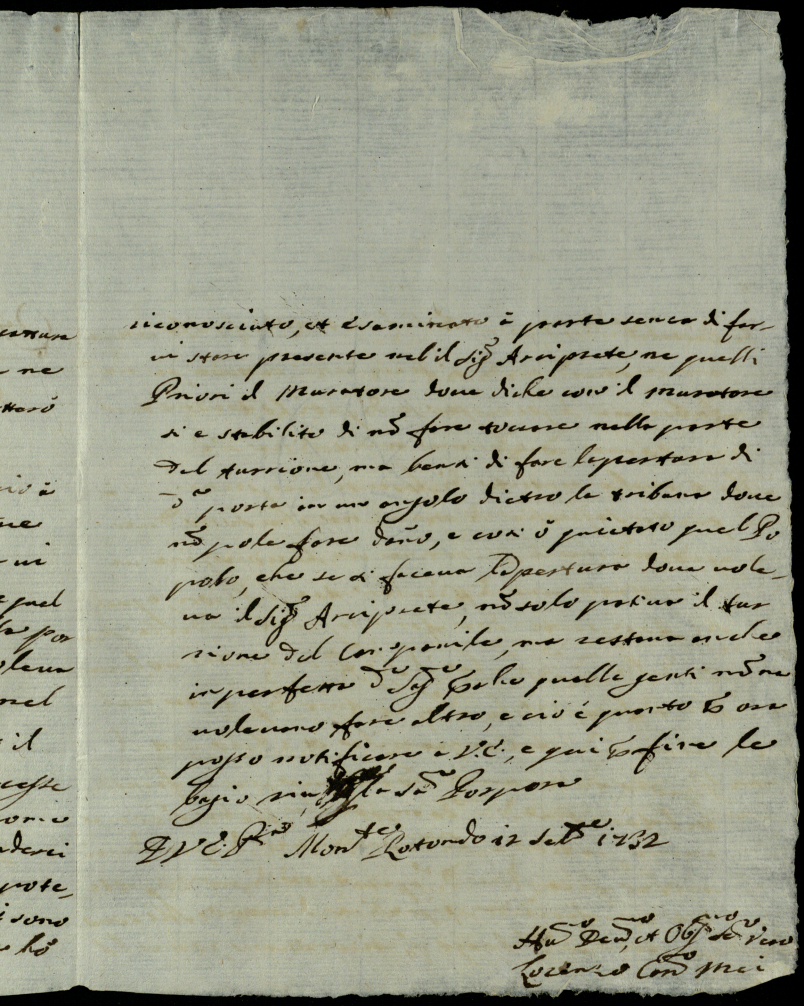 riconosciuto, et esaminato à parte senza di far-
vi stare presente nel il Sig.r Arciprete, ne quelli
Priori il Muratore doue diche così il muratore
si e stabilito di nõ fare toccare nella parte
del turrione, ma bensi di fare lapertura di
d.a porta in un angolo dietro la tribuna doue
nõ pole fare daño, e così ò quietato quel Po
polo, che se si faceua lapertura doue uole-
ua il Sig.r Arciprete, nõ solo patiua il tur
rione del Campanile, ma restaua anche
inperfetta d.a Sag.a perche quelle genti nõ ne
uoleuano fare altro, e ciò è quanto per ora
posso notificare à V.E., e qui per fine le
bagio la Sa. Porpora
D V.E. P.ma Mon.te Rotondo 12 Set.re 1732
Hu.mo Deu.mo, et Obl.mo Se.re Vero
Lorenzo Mei
cesse
sono
hò
ne
quel
il